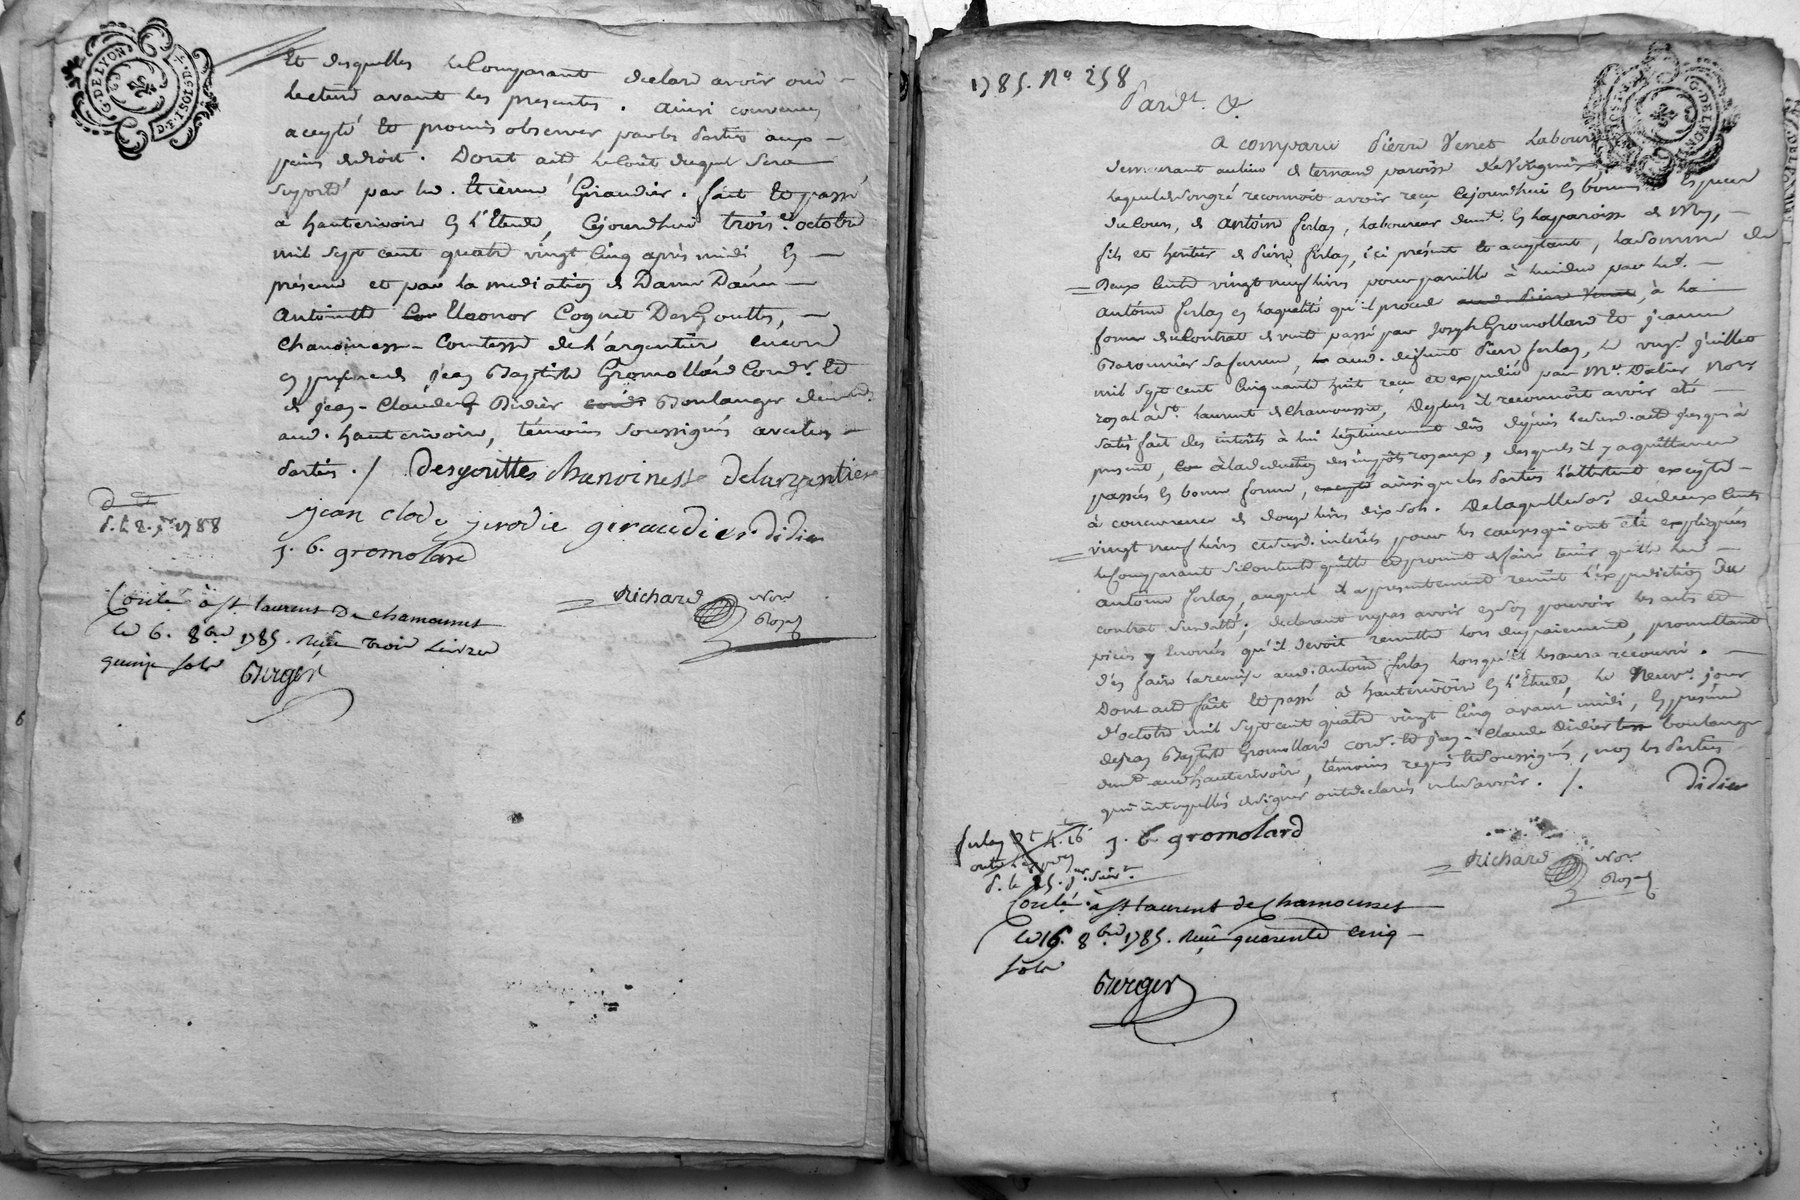 G. DE LYON
et desquelles le Comparant declare avoir oui
lecture avant les presentes. ainsi convenu
accepté et promis observer par les parties aux
peines de droit. Dont acte le cout duquel sera
suporté par led. Etienne Giraudier. fait et passé
a hauterivoire en l'Etude, Cejourdhui trois.e octobre
mil sept cent quatre vingt Cinq après midi, en
présence et par la mediation de Dame Dame
antoinette Eleonor Cognet Desgouttes,
chanoinesse Comtesse de l'argentiere encore
en presence de jean Baptiste Gromollard Cord.r et
de jean-Claude Didier Boulanger demt.
aud. hauterivoire, témoins soussignés avec les
parties ./ Desgouttes chanoinesse delargentiere
jean clode jerodie geraudier didier
j. b. gromolard
Richard Not.re
Royal
Conlé à st. laurent De chamousset
le 6. 8bre 1785. Reçu trois Livres
quinze sols Berger
1785. No 258
Pardt. &
G. DE LYON
a comparu Pierre Venet Laboureur
demeurant au lieu de ternand paroisse de
lequel de son gré reconnoit avoir reçu Cejourdhui en bonnes Especes
du Cours, de antoine ferlay, laboureur demt. en la paroisse de Mey,
fils et heritier de Pierre ferlay, ici présent et acceptant, la somme de
Deux Cents vingt neuf livres pour pareille à lui due par led.
antoine ferlay en la qualité qu'il procede, à la
forme du Contrat de vente passé par Joseph Gromollard et jeanne
sa femme, aud. défunt Pierre ferlay, le juillet
mil sept cent Cinquante huit reçu et expedié par Me. Dalier Notre
royal aud. st. laurent de chamousset, Deplus il reconnoit avoir eté
satisfait des interets à lui légitimement dûs depuis led. acte jusqu'à
present, à la deduction des impots royaux, desquels il y a quittances
passées en bonne forme, ainsi que les parties l'attestent excepté
à concurrence de douze livres dix sols. De laquelle so.e de deux Cents
vingt neuf livres et desd. interets pour les causes qui ont été expliquées
le Comparant se Contente quitte et promet de faire tenir quitte led.
antoine ferlay, auquel il a presentement remit l'expedition du
contrat susdatté, declarant ne pas avoir en son pouvoir les actes et
pieces y enoncés qu'il devoit remettre lors du paiement, promettant
d'en faire la remise aud. antoine ferlay lorsqu'il les aura recouvré.
Dont acte fait et passé à hauterivoire en l'Etude, le Neuv.e jour
d'octobre mil sept cent quatre vingt Cinq avant midi, en présence
de jean Baptiste Gromollard cord.r et jean-Claude Didier boulanger
demt. aud. hauterivoire, témoins requis et soussignés, non les parties
qui interpellées de signer ont declarés ne le savoir. ./. Didier
j. b. gromolard
Richard Not.re
Royal
Conlé à st. laurent de Chamousset
le 16. 8bre 1785. Reçu quarente cinq
sols
Berger